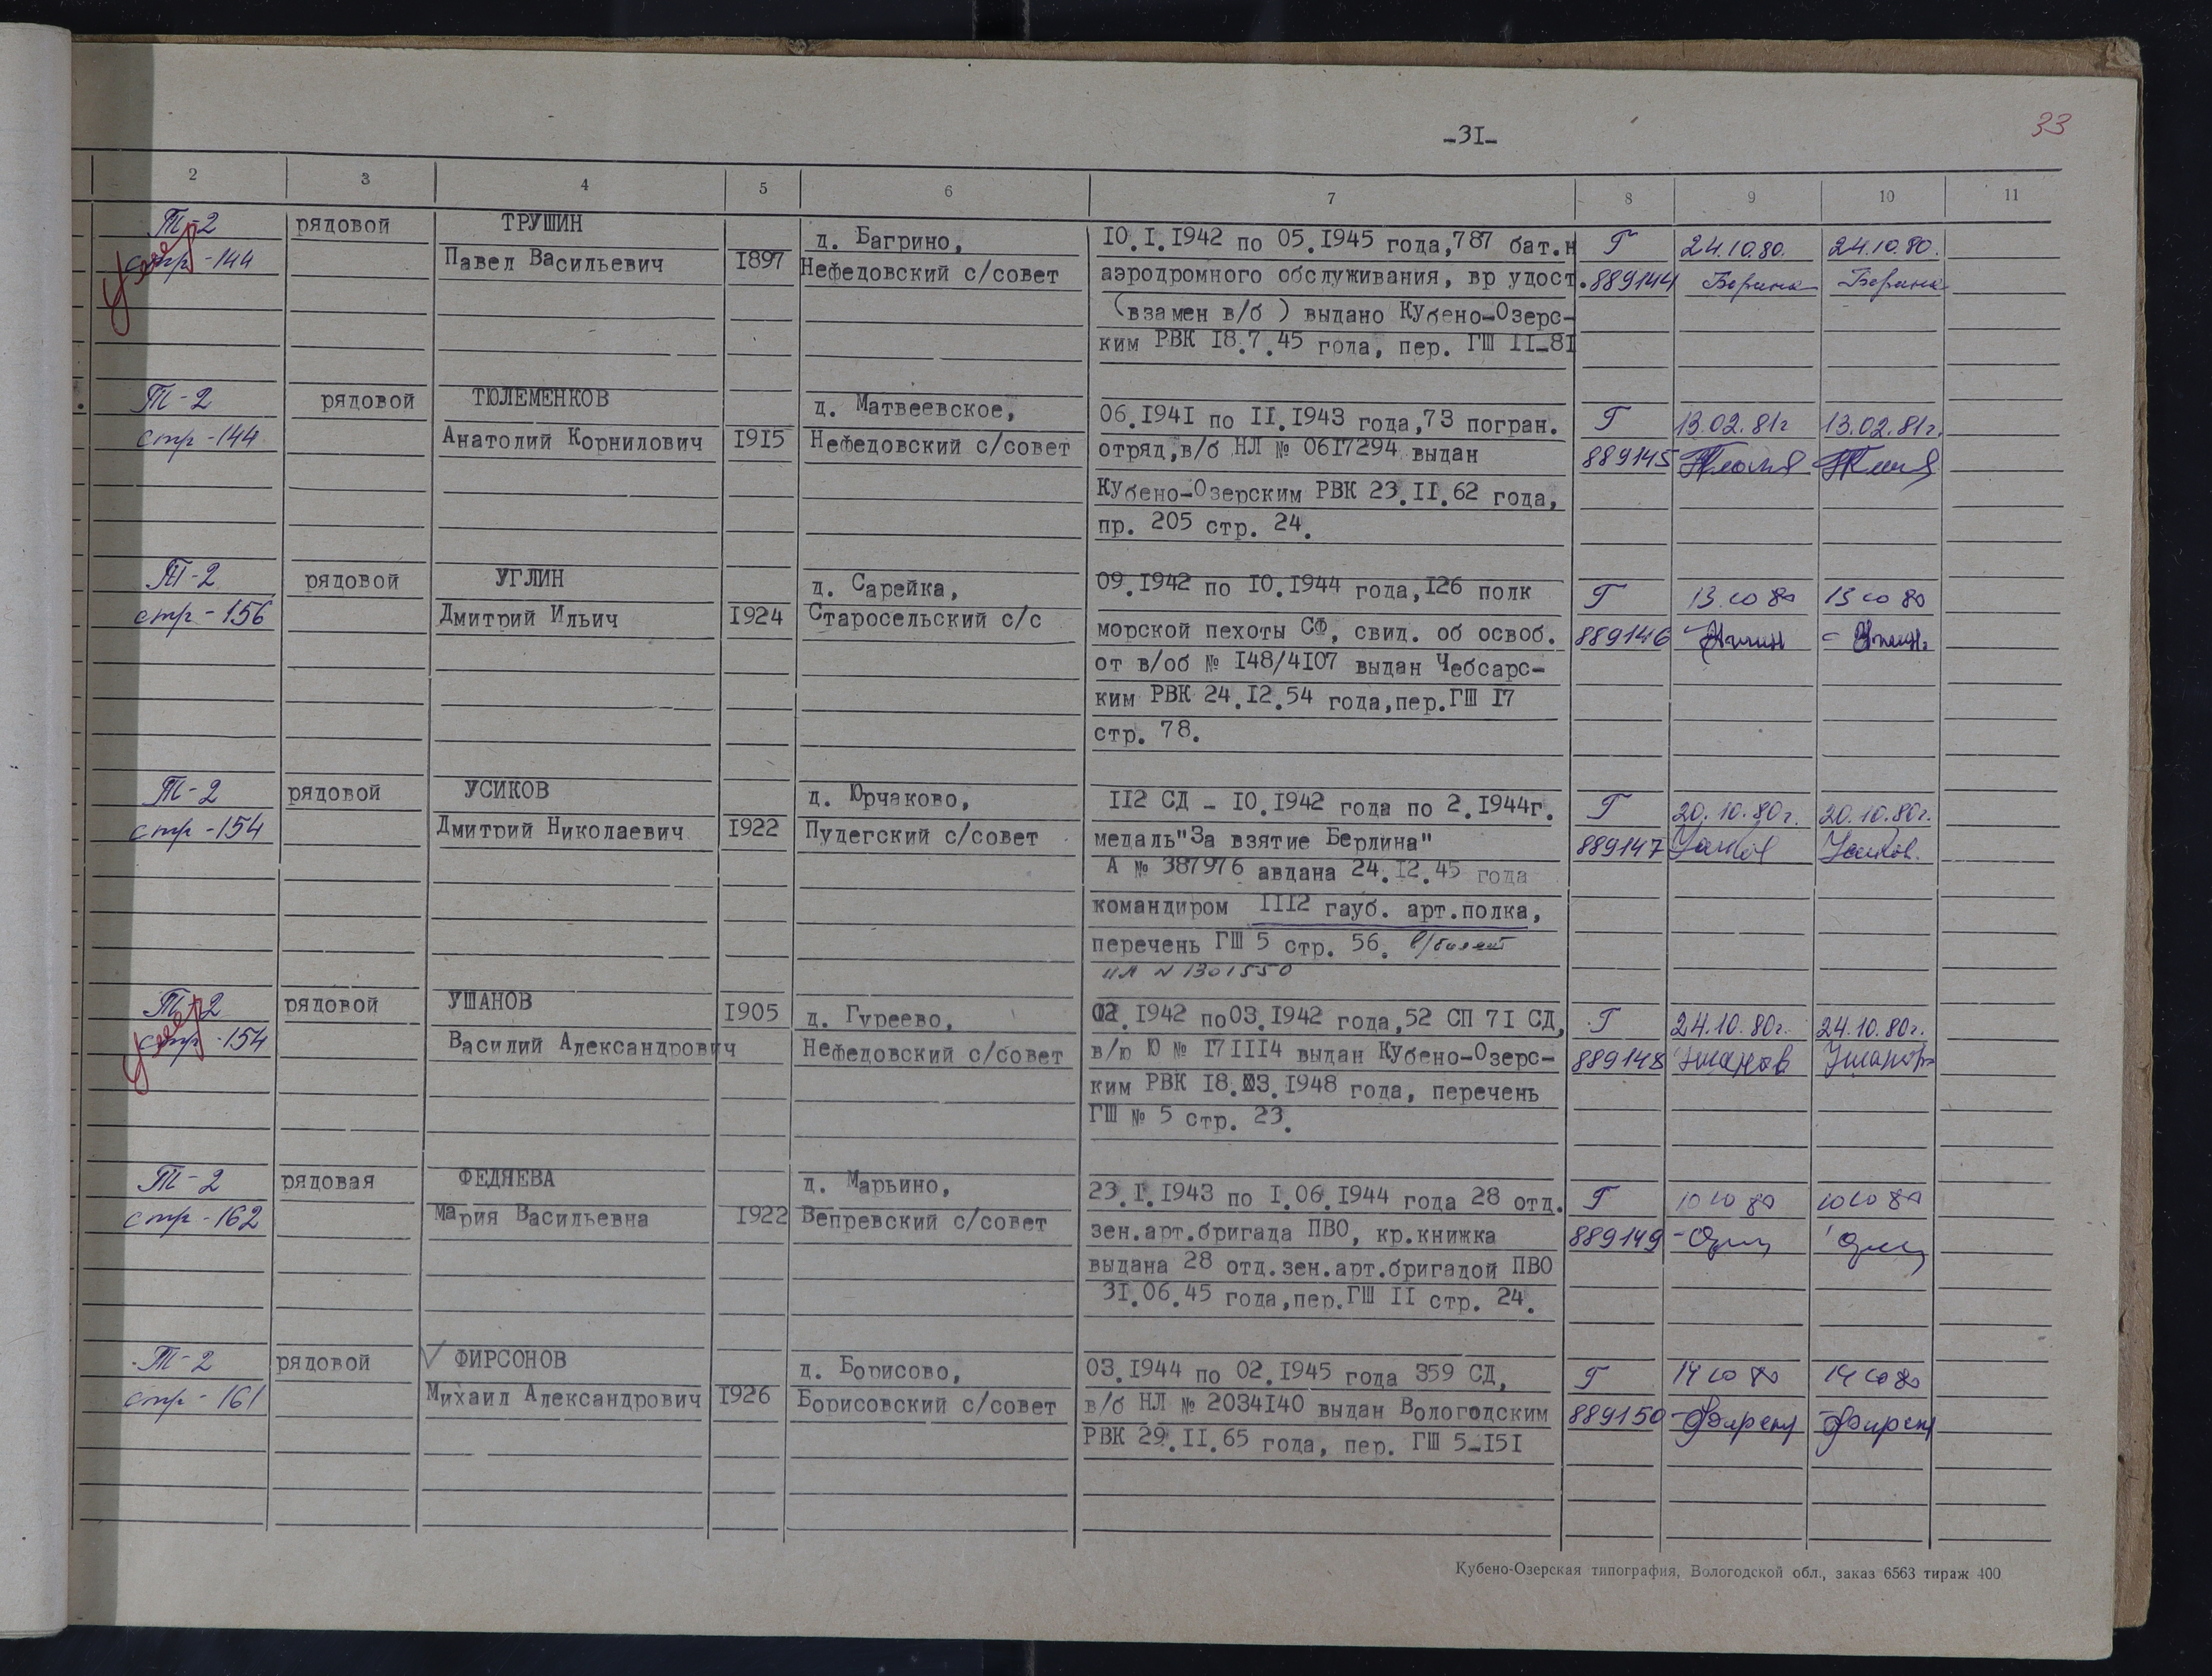 -31-
33
2 3 4 5 6 7 8 9 10 11
Т-2 рядовой ТРУШИН д. Багрино, 10.I.1942 по 05.1945 года,787 бат.н Г 24.10.80. 24.10.80.
стр-144 Павел Васильевич 1897 Нефедовский с/совет аэродромного обслуживания, вр удост. 889144
умер
(взамен в/б ) выдано Кубено-Озерс-
ким РВК 18.7.45 года, пер. ГШ II-81
Т-2 рядовой ТЮЛЕМЕНКОВ д. Матвеевское, 06.1941 по II.1943 года,73 погран. Г 13.02.81г 13.02.81г.
стр-144 Анатолий Корнилович 1915 Нефедовский с/совет отряд,в/б НЛ № 0617294 выдан 889145
Кубено-Озерским РВК 23.II.62 года,
пр. 205 стр. 24.
Т-2 рядовой УГЛИН д. Сарейка, 09.1942 по 10.1944 года,126 полк Г 13 10 80 13 10 80
стр-156 Дмитрий Ильич 1924 Старосельский с/с морской пехоты СФ, свид. об освоб. 889146
от в/об № 148/4107 выдан Чебсарс-
ким РВК 24.12.54 года,пер.ГШ 17
стр. 78.
Т-2 рядовой УСИКОВ д. Юрчаково, II2 СД - 10.1942 года по 2.1944г. Г 20.10.80г. 20.10.80г.
стр-154 Дмитрий Николаевич 1922 Пудегский с/совет медаль"За взятие Берлина" 889147 Усиков Усиков.
А № 387976 авдана 24.12.45 года
командиром III2 гауб. арт.полка,
перечень ГШ 5 стр. 56. в/билет
НЛ N 1301550
Т-2 рядовой УШАНОВ 1905 д. Гуреево, 02.1942 по03.1942 года,52 СП 71 СД, Г 24.10.80г. 24.10.80г.
стр-154 Василий Александрович Нефедовский с/совет в/ю Ю № 171114 выдан Кубено-Озерс- 889148 Ушанов Ушанов
умер
ким РВК 18.03.1948 года, перечень
ГШ № 5 стр. 23.
Т-2 рядовая ФЕДЯЕВА д. Марьино, 23.I.1943 по I.06.1944 года 28 отд. Г 10 10 80 10 10 80
стр-162 Мария Васильевна 1922 Вепревский с/совет зен.арт.бригада ПВО, кр.книжка 889149
выдана 28 отд.зен.арт.бригадой ПВО
31.06.45 года,пер.ГШ II стр. 24.
Т-2 рядовой ФИРСОНОВ д. Борисово, 03.1944 по 02.1945 года 359 СД, Г 14 10 80 14 10 80
стр-161 Михаил Александрович 1926 Борисовский с/совет в/б НЛ № 2034140 выдан Вологодским 889150
РВК 29.II.65 года, пер. ГШ 5-151
Кубено-Озерская типография, Вологодской обл., заказ 6563 тираж 400